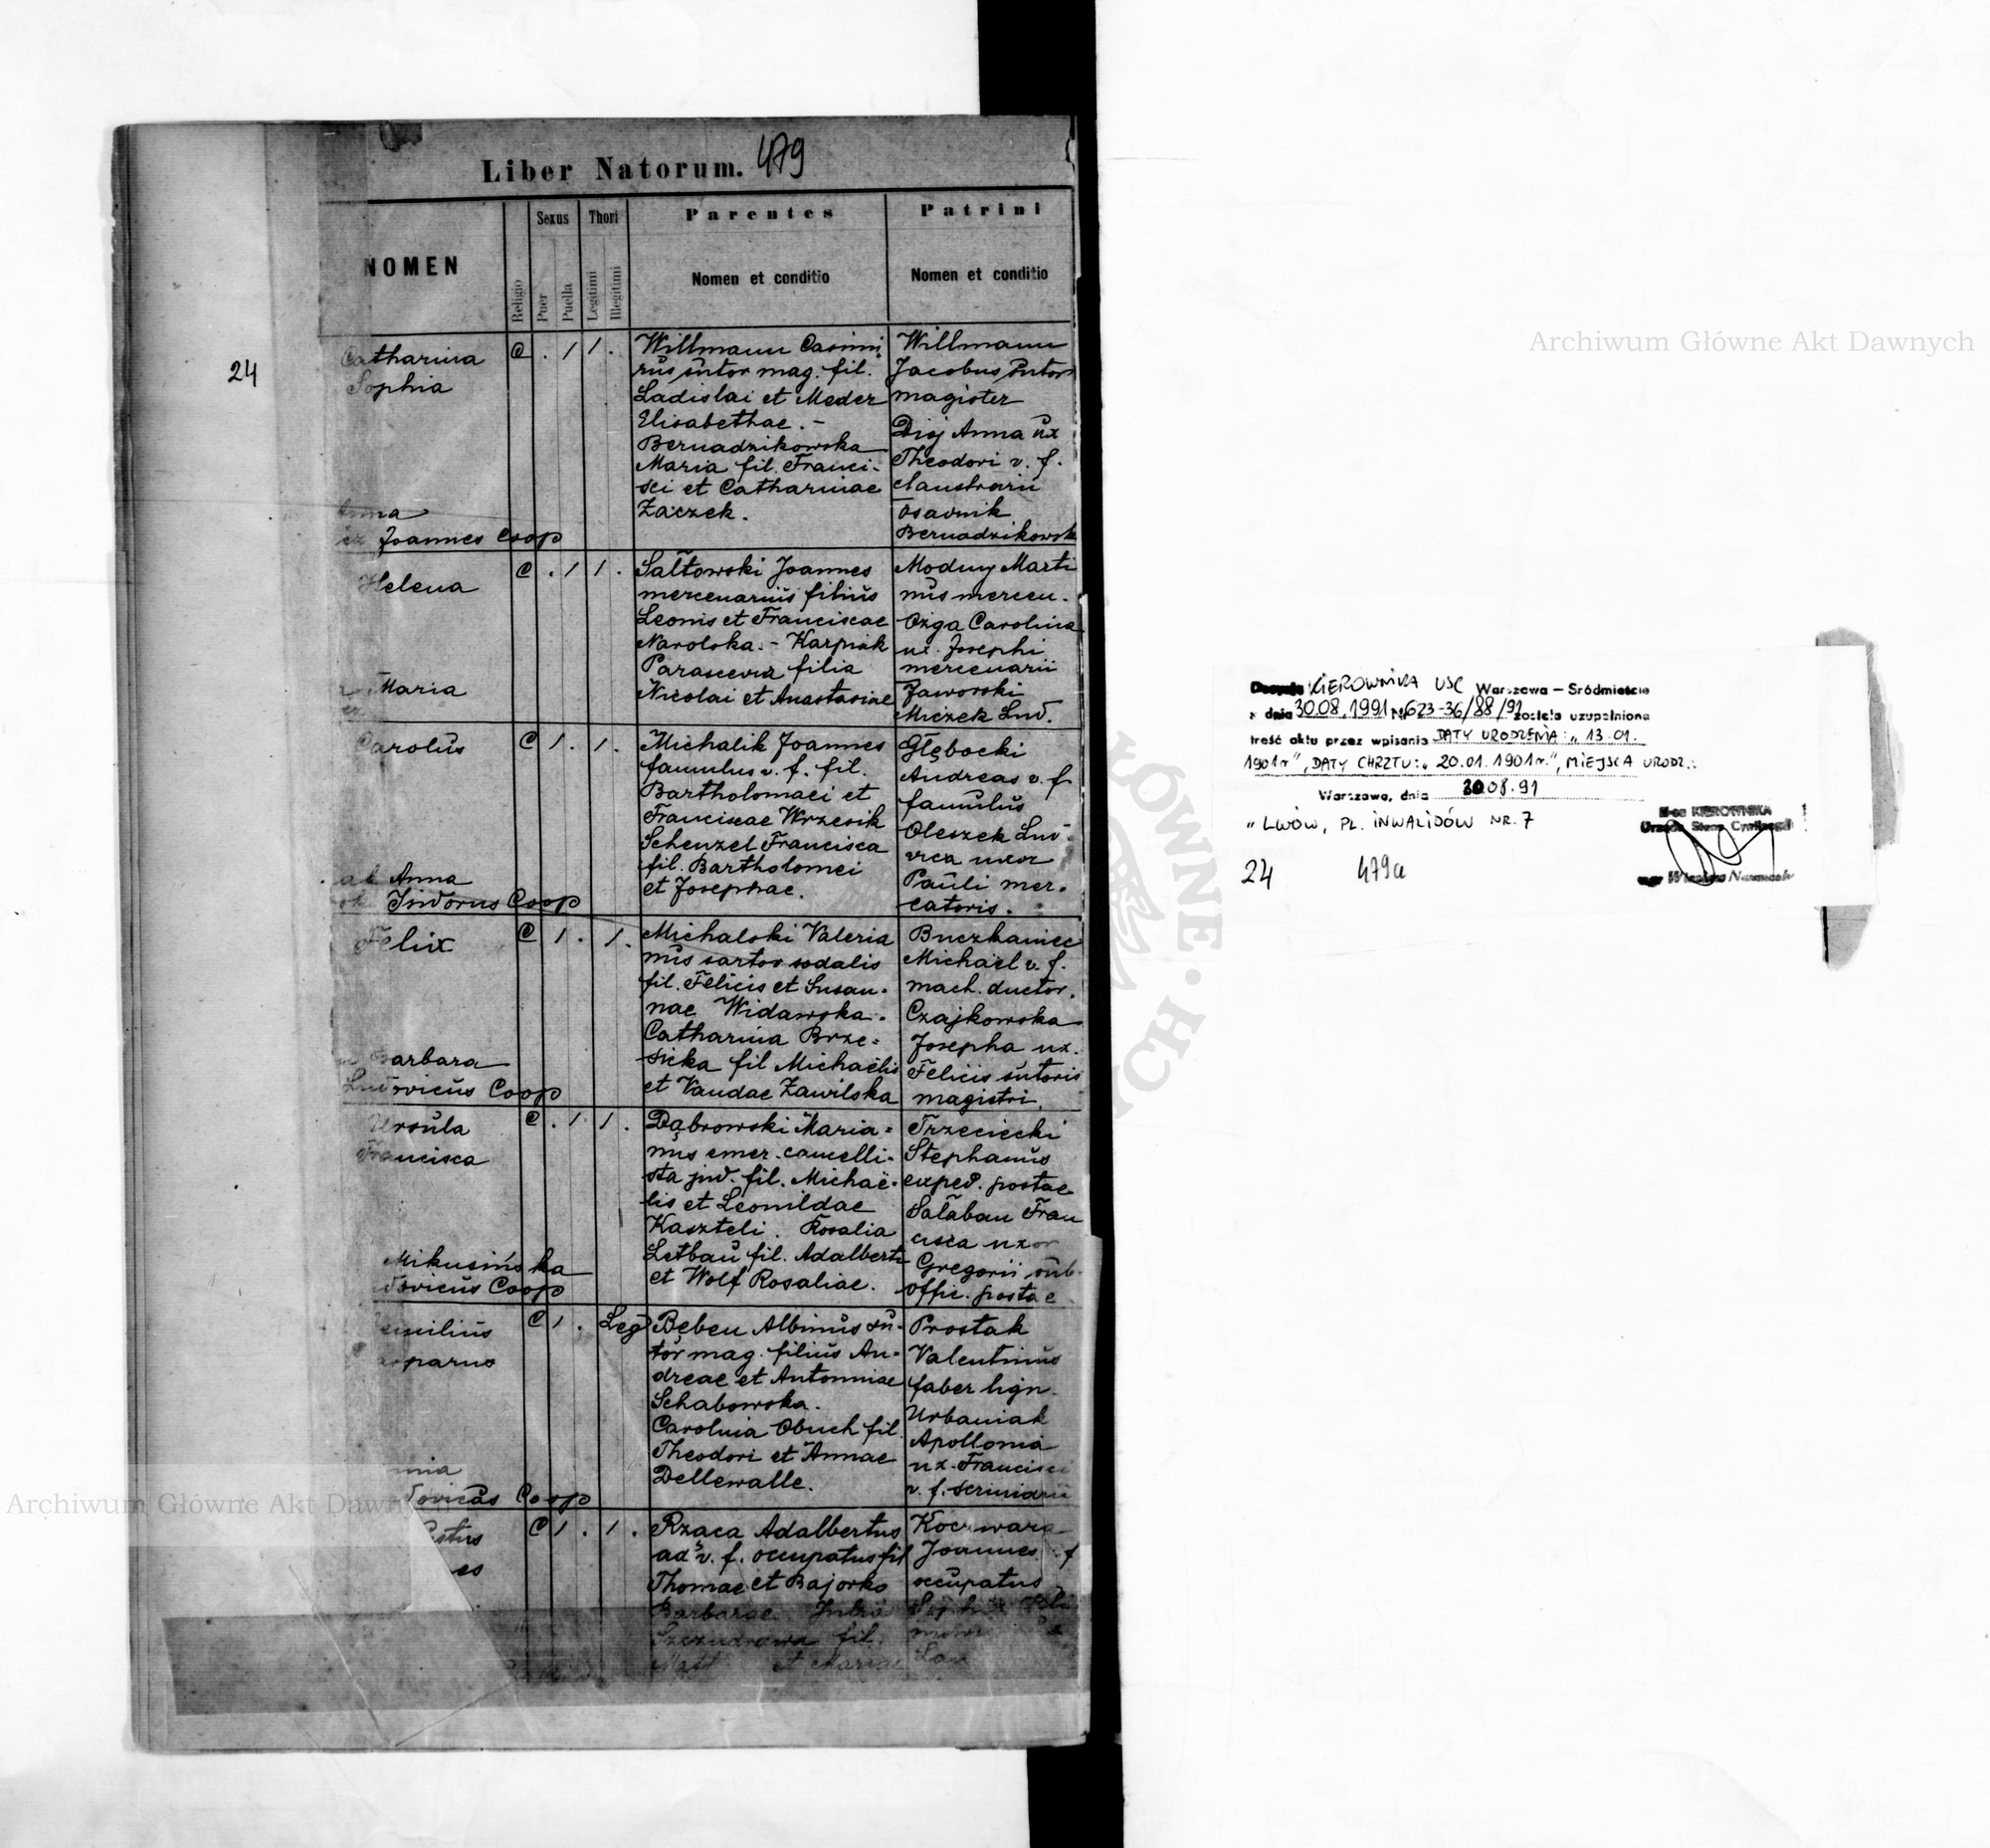 Liber Natorum. 479
NOMEN
Religio
Sexus
Puer
Puella
Thori
Legitimi
Illegitimi
Parentes
Nomen et conditio
Patrini
Nomen et conditio
24
Catharina
Sophia
Anna
Joannes Coop
C . 1 1 .
Willmann Casimi
rus sutor mag. fil.
Ladislai et Meder
Elisabethae. -
Bernadzikowska
Maria fil. Franci-
sci et Catharinae
Zaczek.
Willmann
Jacobus sutor
magister
Anna ux
Theodori v. f.
claustrarii
Osadnik
Bernadzikowsk
Helena
Maria
C . 1 1 .
Sałtowski Joannes
mercenarius filius
Leonis et Franciscae
Narolska. - Karpiak
Parascevia filia
Nicolai et Anastasiae
Moduy Marti
nus mercen.
Ożga Carolina
ux. Josephi
mercenarii
Jaworski
Miczek Lud.
Carolus
Anna
Isidorus Coop
C 1 . 1 .
Michalik Joannes
famulus v. f. fil.
Bartholomaei et
Franciscae Wrzesik
Schenzel Francisca
fil. Bartholomei
et Josephae.
Głębocki
Andreas v. f.
famulus
Oleszek Lud-
vica uxor
Pauli mer-
catoris.
Felix
Barbara
Ludovicus Coop
C 1 . 1 .
Michalski Valeria
nus sartor sodalis
fil. Felicis et Susan-
nae Widawska.
Catharina Brze-
sicka fil Michaëlis
et Vandae Zawilska
Buczkaniec
Michaël v. f.
mach. ductor.
Czajkowska
Josepha ux.
Felicis sutoris
magistri.
Ursula
Francisca
Mikusińska
dovicus Coop
C . 1 1 .
Dąbrowski Maria-
nus emer. cancelli-
sta jud. fil. Michaë-
lis et Leonildae
Kaszteli. Rosalia
Letbau fil. Adalberti
et Wolf Rosaliae.
Trzeciecki
Stephanus
exped. postae
Sałaban Fran
cisca uxor
Gregorii sub-
offic. postae
C 1 . Leg
Bęben Albinus su-
tor mag. filius An-
dreae et Antoninae
Schabowska.
Carolina Obuch fil.
Theodori et Annae
Dellewalle.
Prostak
Valentinus
faber lign.
Urbaniak
Apollonia
ux. Francisci
v. f. scriniarii
dovicus Coop
C 1 . 1 .
Rzaca Adalbertus
ad v. f. occupatus fil
Thomae et Bajorko
Barbarae Julia
fil.
et Mariae
Joannes f
occupatus
KIEROWNIKA USC Warszawa – Śródmieście
z dnia 30.08.1991 Nr 623-36/88/91 została uzupełniona
treść aktu przez wpisanie DATY URODZENIA: „13.01.
1901r", DATY CHRZTU: „20.01.1901r.", MIEJSCA URODZ.:
Warszawa, dnia 30.08.91
„LWÓW, PL. INWALIDÓW NR. 7
Z-ca KIEROWNIKA
Urzędu Stanu Cywilnego
24 479a
Archiwum Główne Akt Dawnych
Archiwum Główne Akt Dawnych